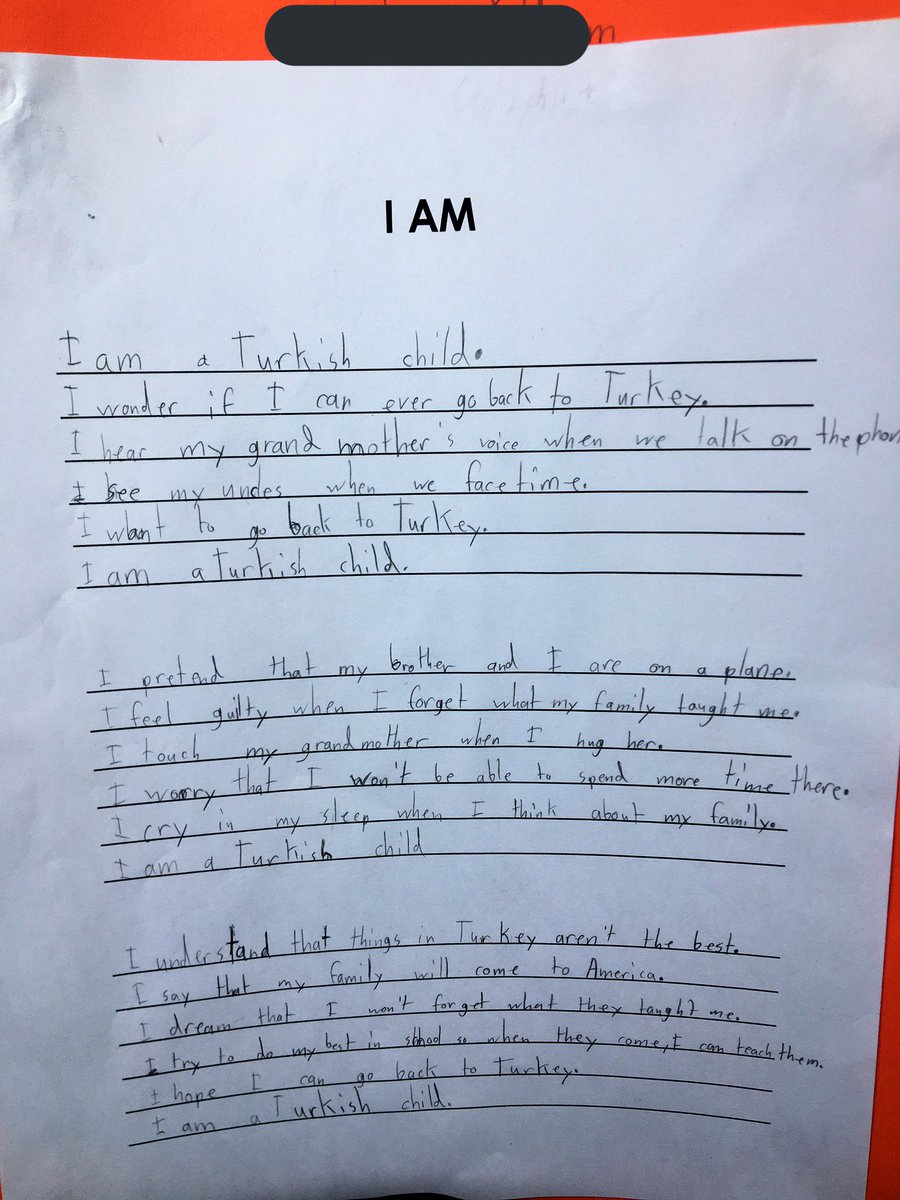 I AM
I am a Turkish child.
I wonder if I can ever go back to Turkey.
I hear my grand mother's voice when we talk on the phon
I see my uncles when we facetime.
I want to go back to Turkey.
I am a Turkish child.
I pretend that my brother and I are on a plane.
I feel guilty when I forget what my family taught me.
I touch my grandmother when I hug her.
I worry that I won't be able to spend more time there.
I cry in my sleep when I think about my family.
I am a Turkish child
I understand that things in Turkey aren't the best.
I say that my family will come to America.
I dream that I won't forget what they taught me.
I try to do my best in school so when they come, I can teach them.
I hope I can go back to Turkey.
I am a Turkish child.